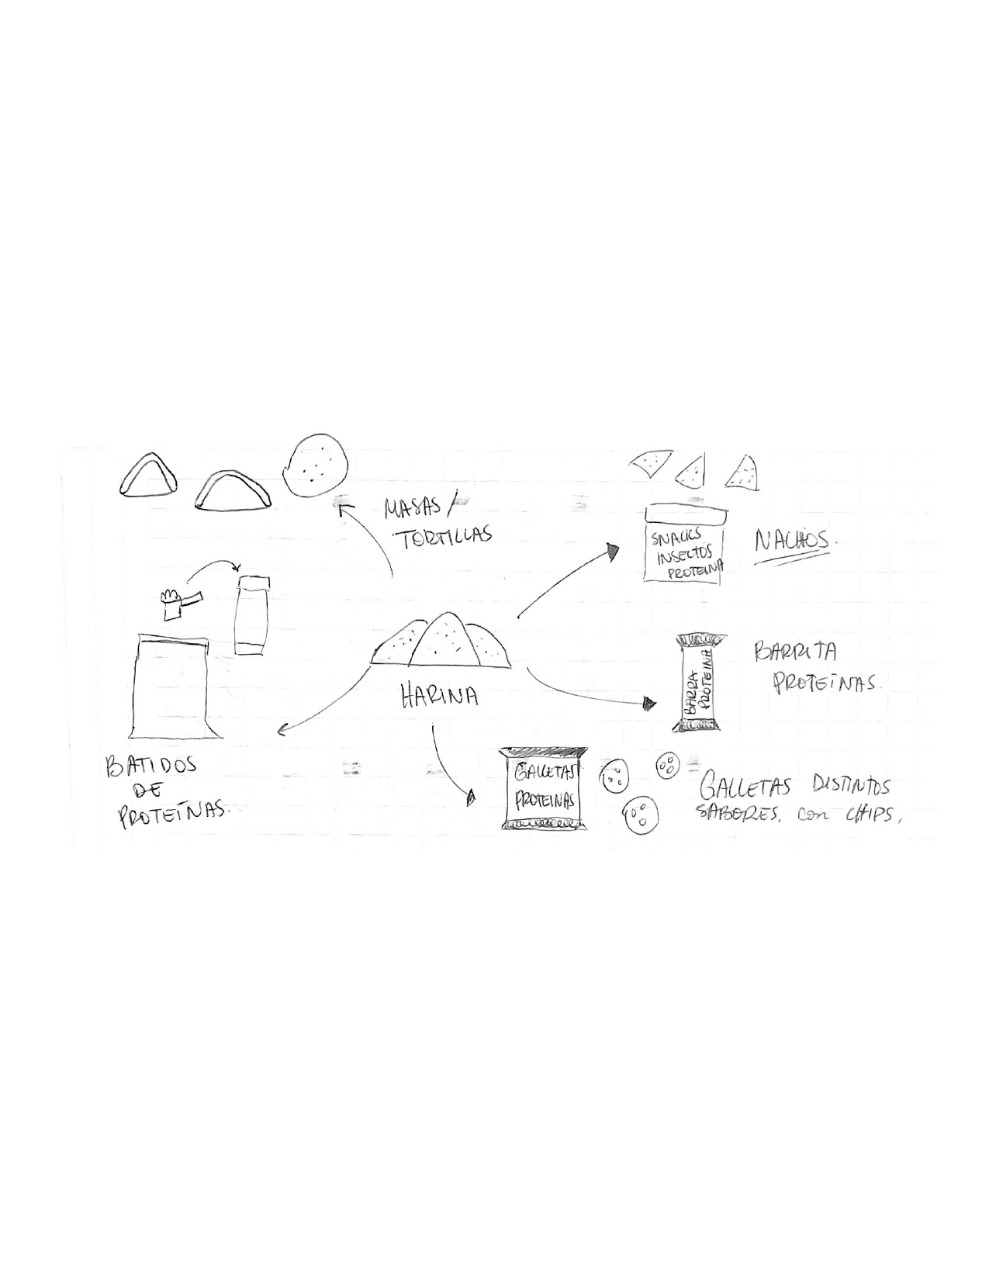 MASAS/
TORTILLAS
SNACKS
INSECTOS
PROTEINA
NACHOS.
HARINA
BARRA
PROTEINA
BARRITA
PROTEÍNAS.
BATIDOS
DE
PROTEÍNAS.
GALLETAS
PROTEINAS
GALLETAS DISTINTOS
SABORES. con CHIPS.